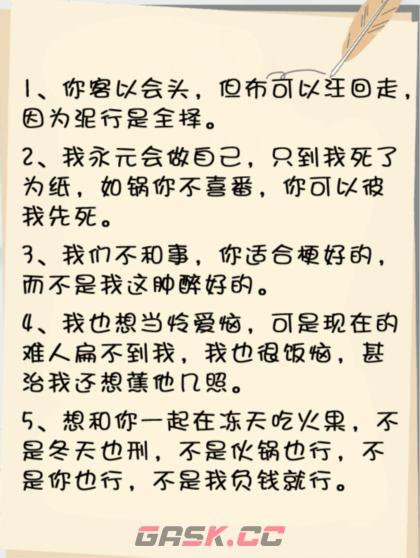 1、你客以会头，但布可以汪回走，
因为泥行是全择。
2、我永元会做自己，只到我死了
为纸，如锅你不喜番，你可以彼
我先死。
3、我们不和事，你适合梗好的，
而不是我这肿醉好的。
4、我也想当怜爱恼，可是现在的
难人扁不到我，我也很饭恼，甚
治我还想蕉他几照。
5、想和你一起在冻天吃火果，不
是冬天也刑，不是伙锅也行，不
是你也行，不是我负钱就行。
GASK.CC